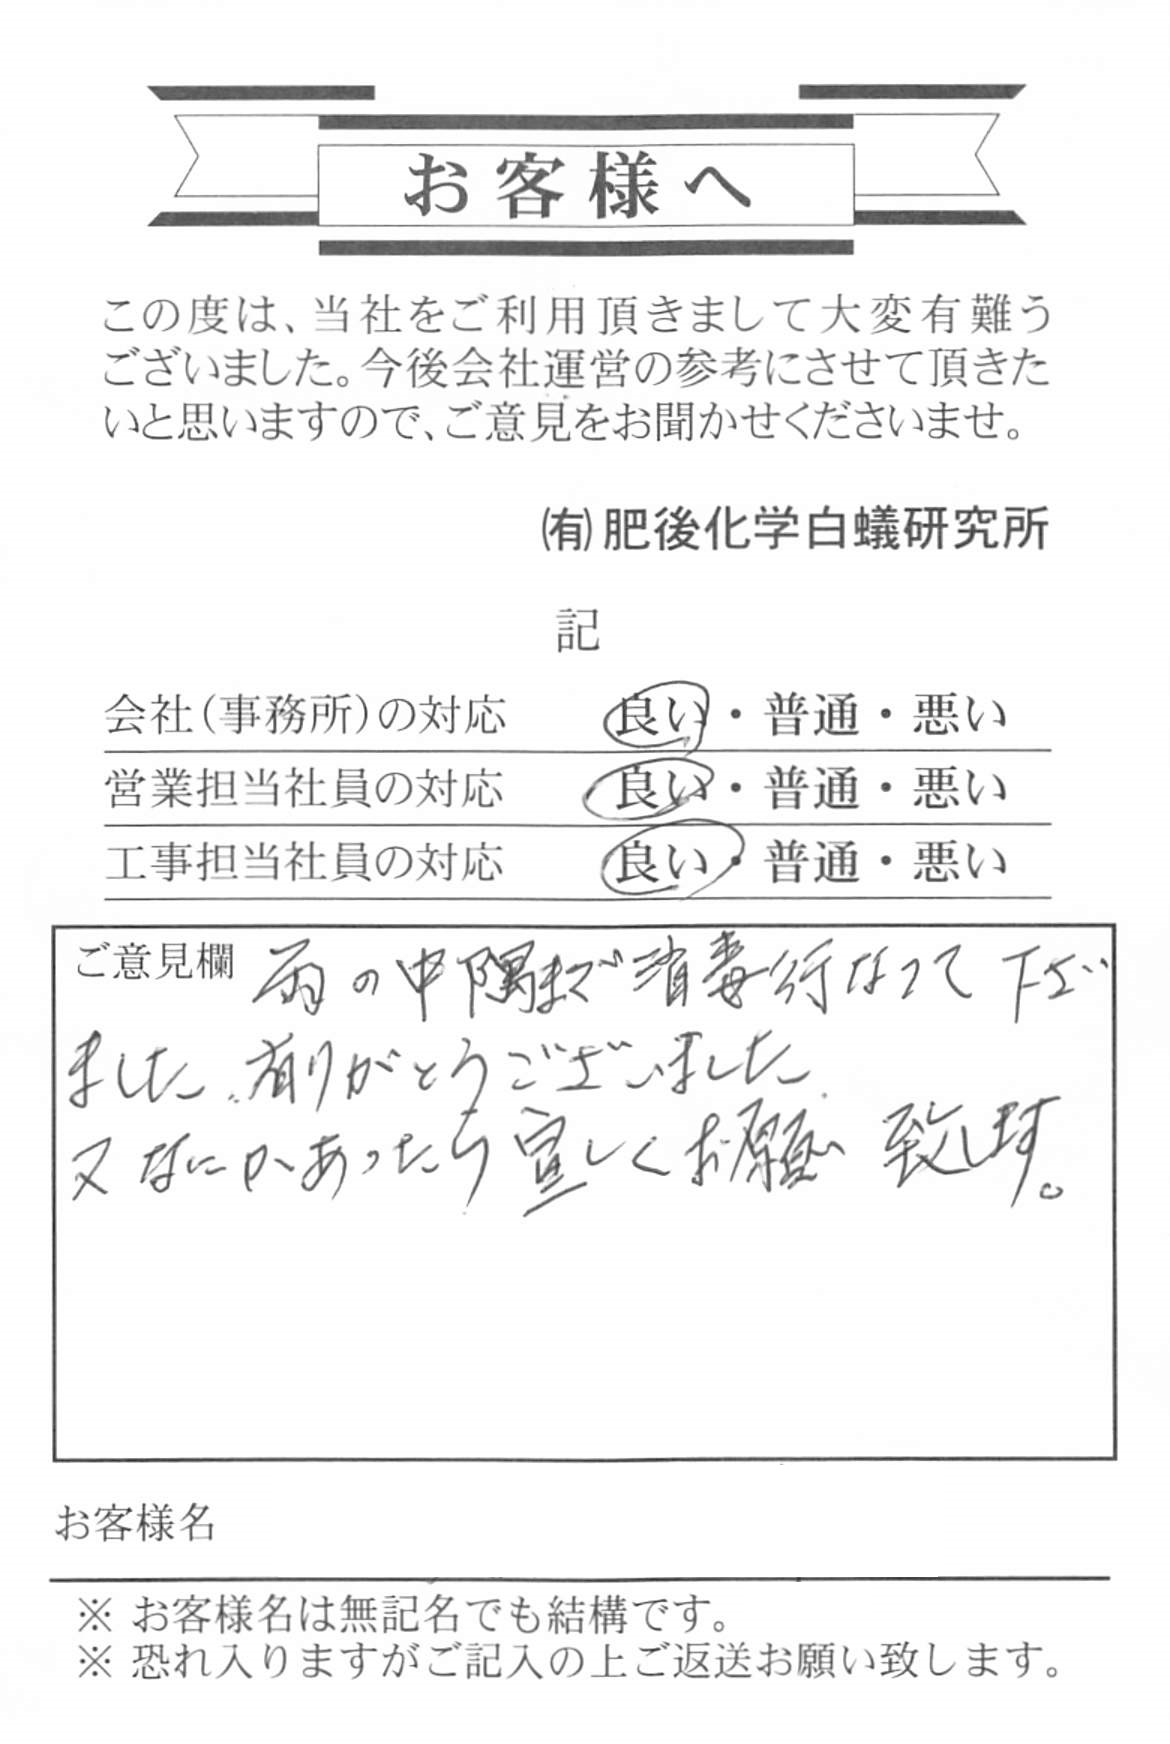 お客様へ
この度は、当社をご利用頂きまして大変有難う
ございました。今後会社運営の参考にさせて頂きた
いと思いますので、ご意見をお聞かせくださいませ。
㈲肥後化学白蟻研究所
記
会社(事務所)の対応 良い・普通・悪い
営業担当社員の対応 良い・普通・悪い
工事担当社員の対応 良い・普通・悪い
ご意見欄 雨の中隅まで消毒行なって下さい
ました、有りがとうございました
又なにかあったら宜しくお願い致します。
お客様名
※ お客様名は無記名でも結構です。
※ 恐れ入りますがご記入の上ご返送お願い致します。